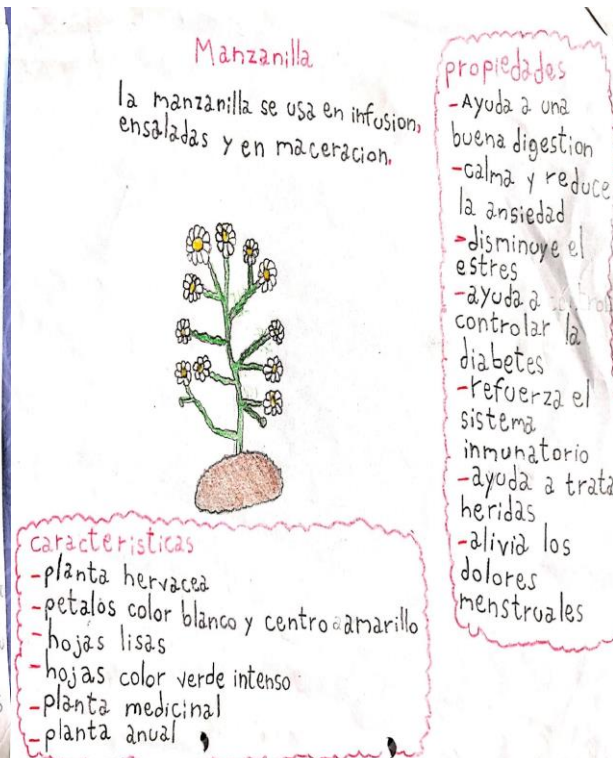 Manzanilla
la manzanilla se usa en infusion,
ensaladas y en maceracion.
propiedades
-Ayuda a una
buena digestion
-calma y reduce
la ansiedad
-disminuye el
estres
-ayuda a
controlar la
diabetes
-refuerza el
sistema
inmunatorio
-ayuda a trata
heridas
-alivia los
dolores
menstruales
caracteristicas
-planta hervacea
-petalos color blanco y centro amarillo
-hojas lisas
-hojas color verde intenso
-planta medicinal
-planta anual